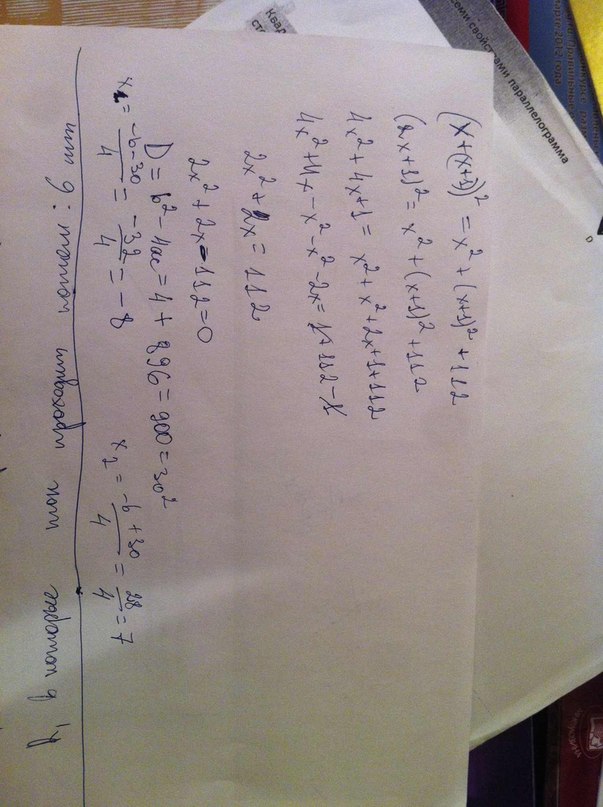 (x+(x+1))² = x² + (x+1)² + 112
(2x+1)² = x² + (x+1)² + 112
4x² + 4x+1 = x² + x² + 2x+1+112
4x² + 4x - x² - x² - 2x = 1+112-1
2x² + 2x = 112
2x² + 2x - 112 = 0
D = b² - 4ac = 4 + 896 = 900 = 30²
x₁ = -b-30/4 = -32/4 = -8
x₂ = -b+30/4 = 28/4 = 7
в которые проходит : 6 шт
семи свойствами параллелограмма
D
Квад